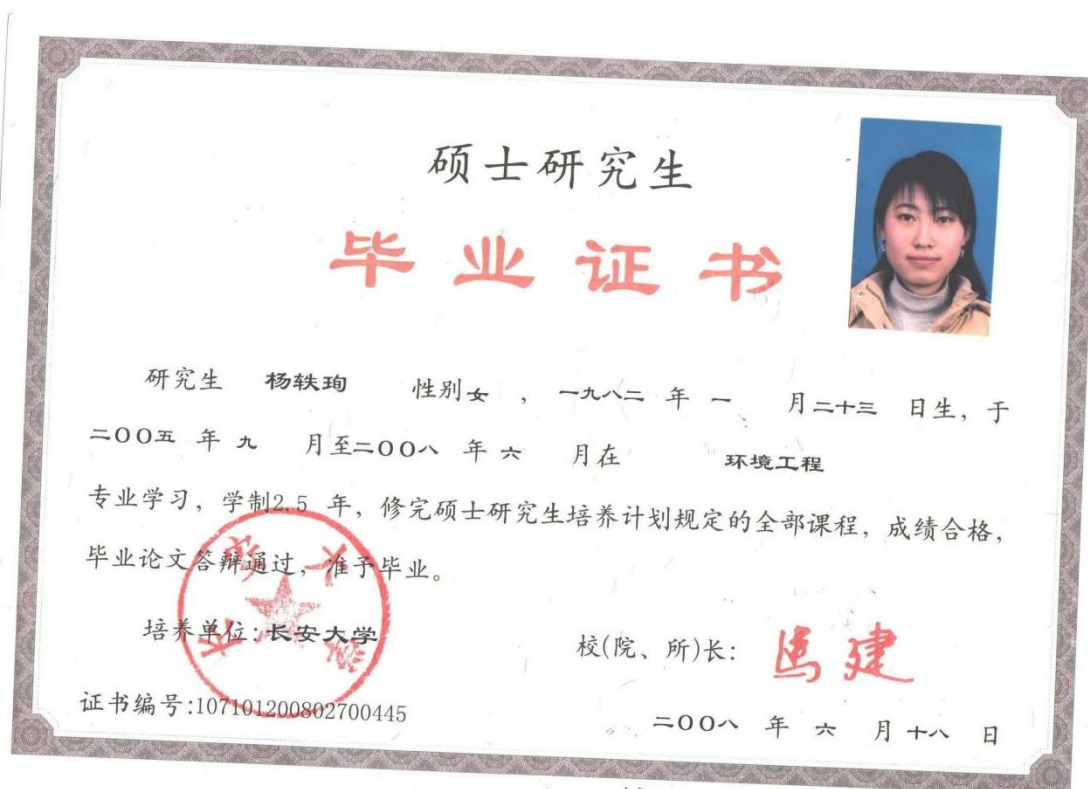 硕士研究生
毕业证书
研究生 杨轶珣 性别女 , 一九八二 年 一 月二十三 日生, 于
二〇〇五 年 九 月至二〇〇八 年 六 月在 环境工程
专业学习, 学制2.5 年, 修完硕士研究生培养计划规定的全部课程, 成绩合格,
毕业论文答辩通过, 准予毕业。
长安大学
培养单位:长安大学
校(院、所)长: 马建
证书编号:107101200802700445
二〇〇八 年 六 月十八 日